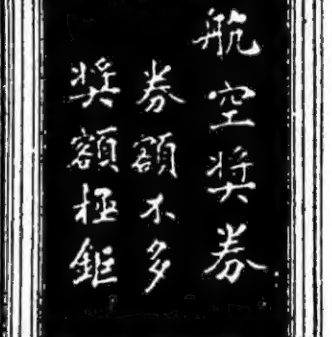 航空奖券
券額不多
奖額極鉅